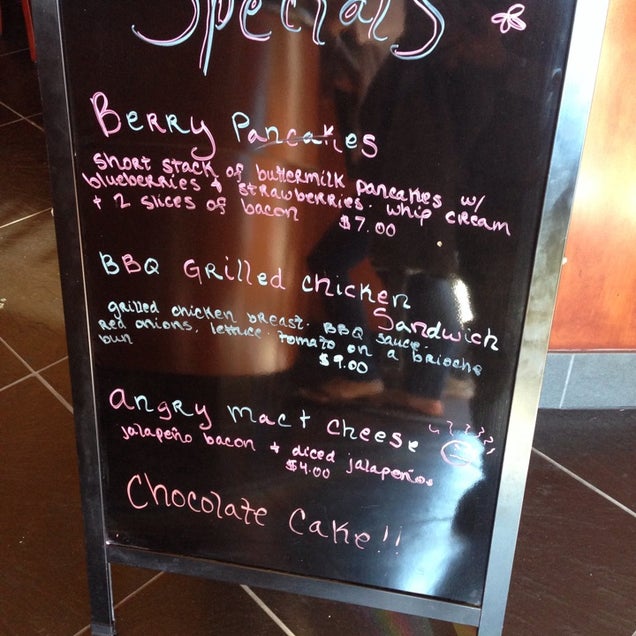 Specials
Berry Pancakes
short stack of buttermilk pancakes w/
blueberries + strawberries. whip cream
+ 2 slices of bacon
$7.00
BBQ Grilled chicken
Sandwich
grilled chicken breast. BBQ sauce.
Red onions. lettuce. tomato on a brioche
bun
$9.00
angry mac + cheese
jalapeño bacon + diced jalapeños
$4.00
Chocolate Cake!!